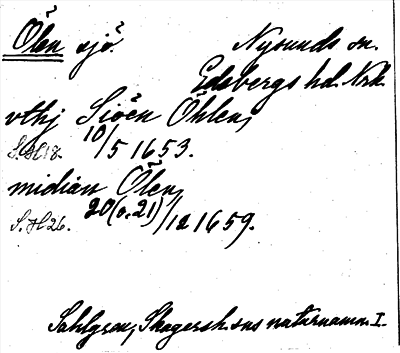 Ölen sjö. Nysunds sn.
Edsbergs hd. Nrk.
vthj Siöën Öhlen,
S.H 18. 10/5 1653.
midian Ölen,
S.H 26. 20(o.21)/12 1659.
Sahlgren, Skagersh.sns naturnamn I.